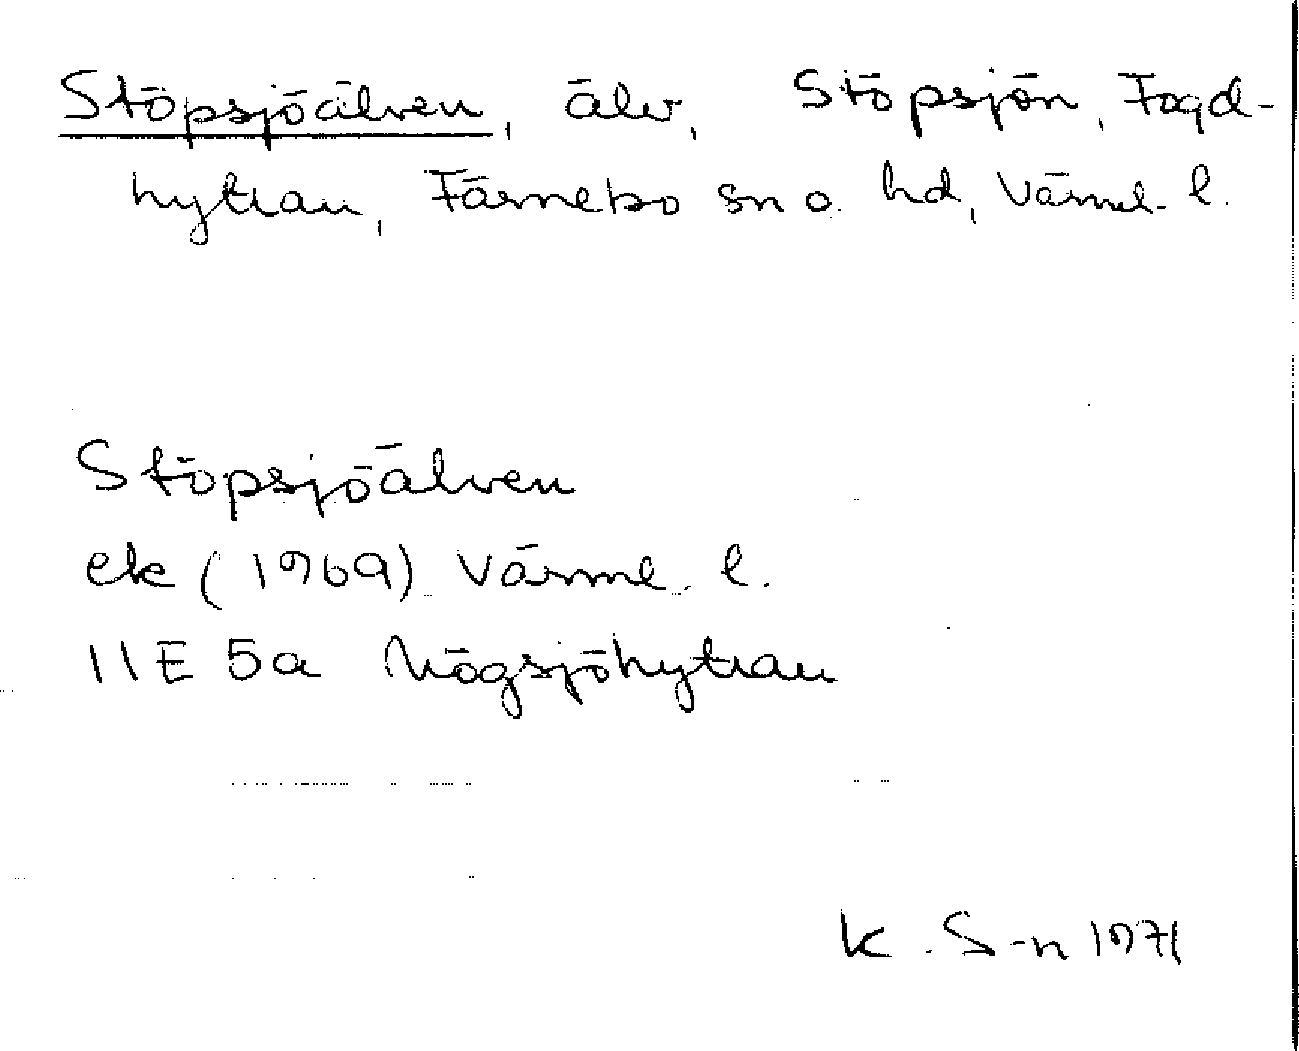 Stöpsjöälven, älv, Stöpsjön, Fogd-
hyttan, Färnebo sn o. hd, Värml. l.
Stöpsjöälven
ek (1969) Värml. l.
11E 5a Högsjöhyttan
K. S-n 1971